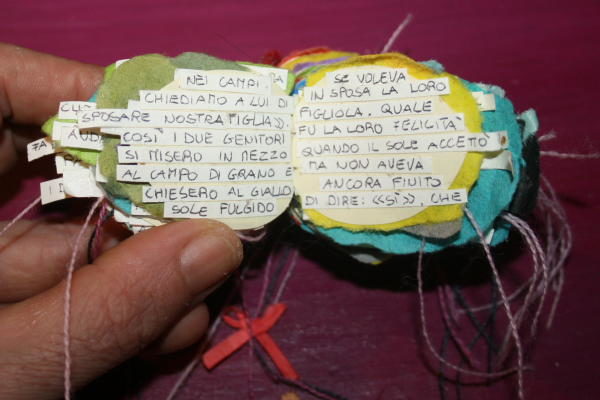 NEI CAMPI
CHIEDIAMO A LUI DI
SPOSARE NOSTRA FIGLIA»
COSÌ I DUE GENITORI
SI MISERO IN MEZZO
AL CAMPO DI GRANO E
CHIESERO AL GIALLO
SOLE FULGIDO
SE VOLEVA
IN SPOSA LA LORO
FIGLIOLA. QUALE
FU LA LORO FELICITÀ
QUANDO IL SOLE ACCETTÒ
MA NON AVEVA
ANCORA FINITO
DI DIRE: «SÌ», CHE